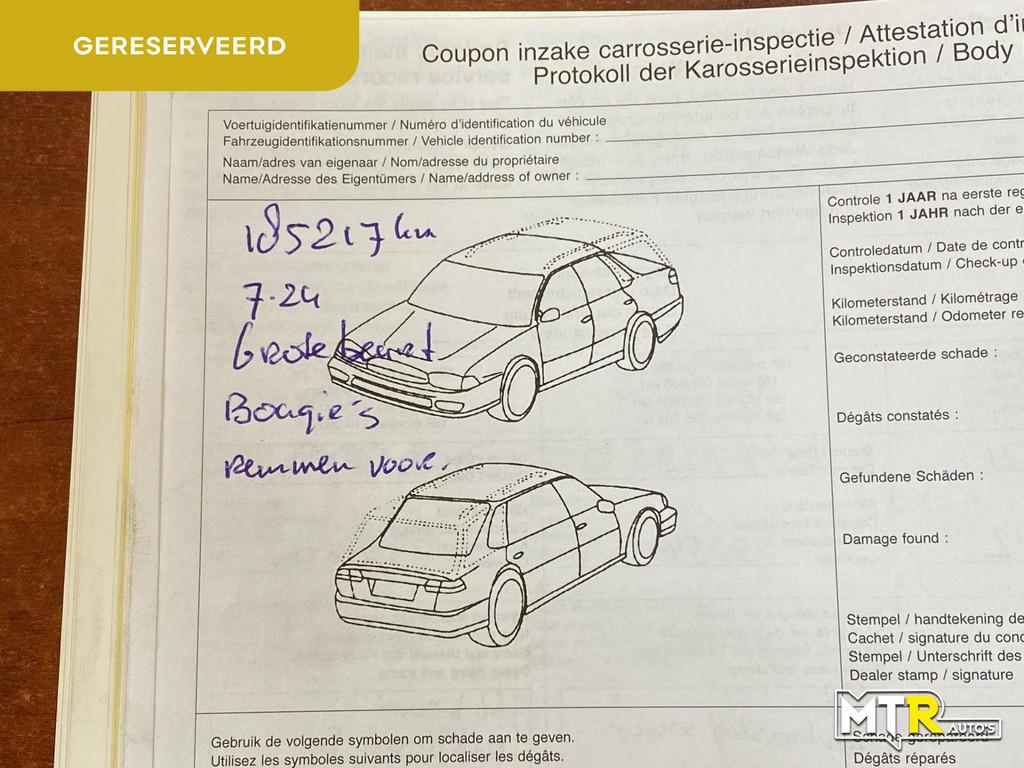 GERESERVEERD
Coupon inzake carrosserie-inspectie / Attestation d'in
Protokoll der Karosserieinspektion / Body
Voertuigidentifikatienummer / Numéro d'identification du véhicule
Fahrzeugidentifikationsnummer / Vehicle identification number :
Naam/adres van eigenaar / Nom/adresse du propriétaire
Name/Adresse des Eigentümers / Name/address of owner :
185217 km
7-24
Grote beurt
Bougie's
remmen voor.
Controle 1 JAAR na eerste reg
Inspektion 1 JAHR nach der e
Controledatum / Date de contr
Inspektionsdatum / Check-up
Kilometerstand / Kilométrage
Kilometerstand / Odometer re
Geconstateerde schade :
Dégâts constatés :
Gefundene Schäden :
Damage found :
Stempel / handtekening de
Cachet / signature du conc
Stempel / Unterschrift des
Dealer stamp / signature
MTR AUTO'S
Schade gerepareerd
Dégâts réparés
Gebruik de volgende symbolen om schade aan te geven.
Utilisez les symboles suivants pour localiser les dégâts.